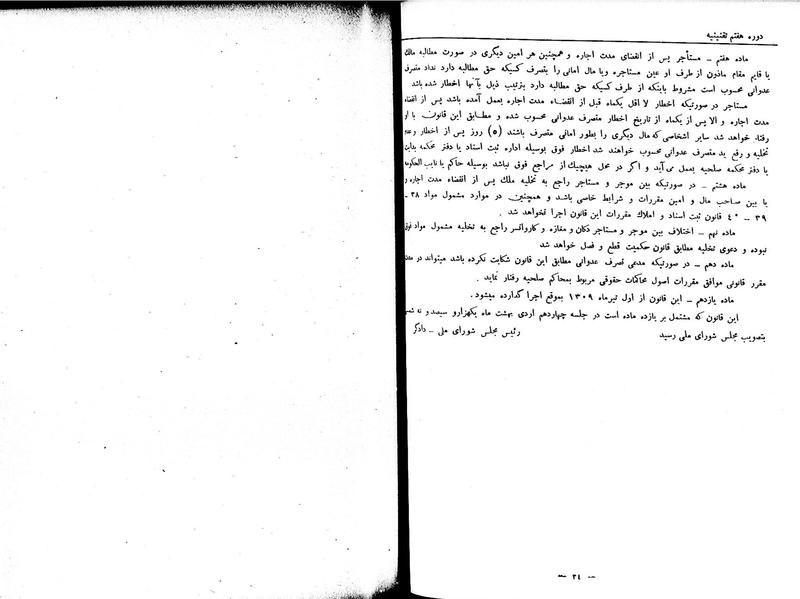 دوره هفتم تقنینیه
ماده هفتم ــ مستأجر پس از انقضای مدت اجاره و همچنین هر امین دیگری در صورت مطالبه مالك
یا قایم مقام ماذون از طرف او عین مستاجره ویا مال امانی را بتصرف کسیکه حق مطالبه دارد نداد متصرف
عدوانی محسوب است مشروط باینکه از طرف کسیکه حق مطالبه دارد بترتیب ذیل بآنها اخطار شده باشد
مستاجر در صورتیکه اخطار لا اقل یکماه قبل از انقضاء مدت اجاره بعمل آمده باشد پس از انقضاء
مدت اجاره و الا پس از یکماه از تاریخ اخطار متصرف عدوانی محسوب شده و مطابق این قانون با او
رفتار خواهد شد سایر اشخاصی که مال دیگری را بطور امانی متصرف باشند (٥) روز پس از اخطار و عدم
تخلیه و رفع ید متصرف عدوانی محسوب خواهند شد اخطار فوق بوسیله اداره ثبت اسناد یا دفتر محکمه بدایت
یا دفتر محکمه صلحیه بعمل می آید و اگر در محل هیچیك از مراجع فوق نباشد بوسیله حاکم یا نایب الحکومه
ماده هشتم ــ در صورتیکه بین موجر و مستاجر راجع به تخلیه ملك پس از انقضاء مدت اجاره و
یا بین صاحب مال و امین مقررات و شرایط خاصی باشد و همچنین در موارد مشمول مواد ٣٨ ــ
٣٩ ــ ٤٠ قانون ثبت اسناد و املاك مقررات این قانون اجرا نخواهد شد .
ماده نهم ــ اختلاف بین موجر و مستاجر دکان و مغازه و کاروانسر راجع به تخلیه مشمول مواد فوق
نبوده و دعوی تخلیه مطابق قانون حکمیت قطع و فصل خواهد شد
ماده دهم ــ در صورتیکه مدعی تصرف عدوانی مطابق این قانون شکایت نکرده باشد میتواند در
مقرر قانونی موافق مقررات اصول محاکمات حقوقی مربوط بمحاکم صلحیه رفتار نماید .
ماده یازدهم ــ این قانون از اول تیرماه ١٣٠٩ بموقع اجرا گذارده میشود .
این قانون که مشتمل بر یازده ماده است در جلسه چهاردهم اردی بهشت ماه یکهزارو سیصد و نه شمسی
بتصویب مجلس شورای ملی رسید
رئیس مجلس شورای ملی ــ دادگر
ــ ٢٤ ــ